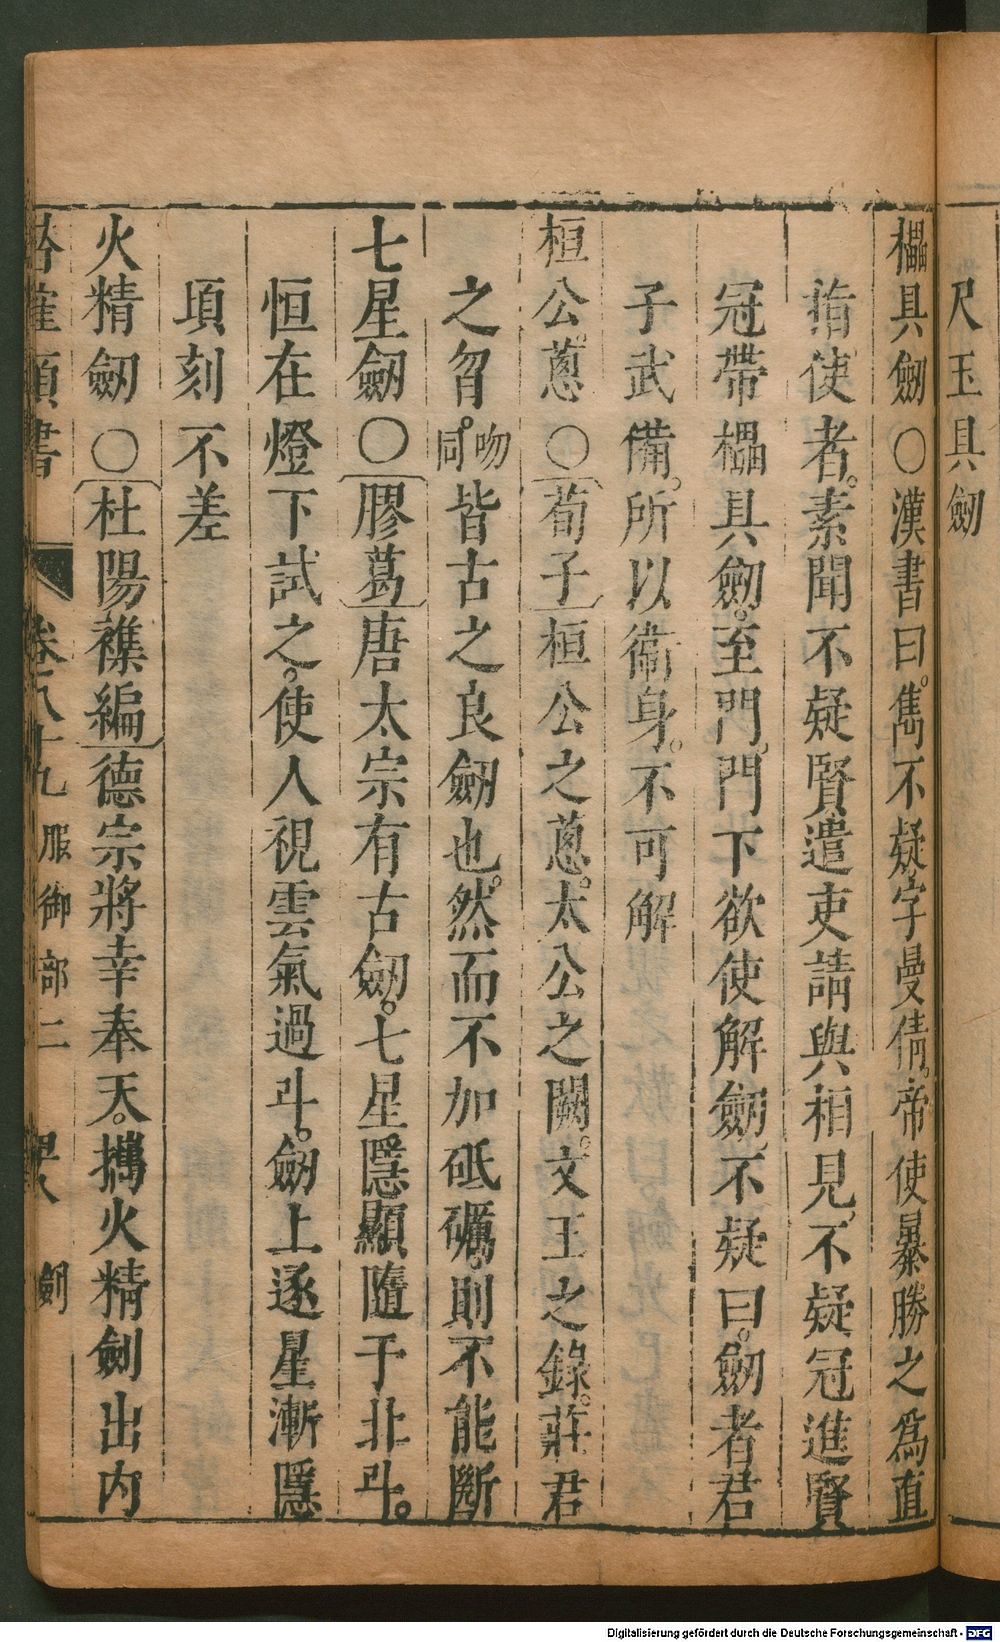 尺玉具劒
櫑具劒○漢書曰。雋不疑字曼倩。帝使暴勝之爲直
指使者。素聞不疑賢遣吏請與相見。不疑冠進賢
冠帶櫑具劒。至門。門下欲使解劒。不疑曰。劒者君
子武備。所以衞身。不可解
桓公。蔥○荀子桓公之蔥。太公之闕。文王之錄。莊君
之曶。同吻皆古之良劒也。然而不加砥礪。則不能斷
七星劒○膠葛唐太宗有古劒。七星隱顯隨于北斗。
恒在燈下試之。使人視雲氣過斗。劒上逐星漸隱
項刻不差
火精劒○杜陽襍編德宗將幸奉天。攜火精劍出內
類書 卷八十九 服御部二 劍
Digitalisierung gefördert durch die Deutsche Forschungsgemeinschaft - DFG